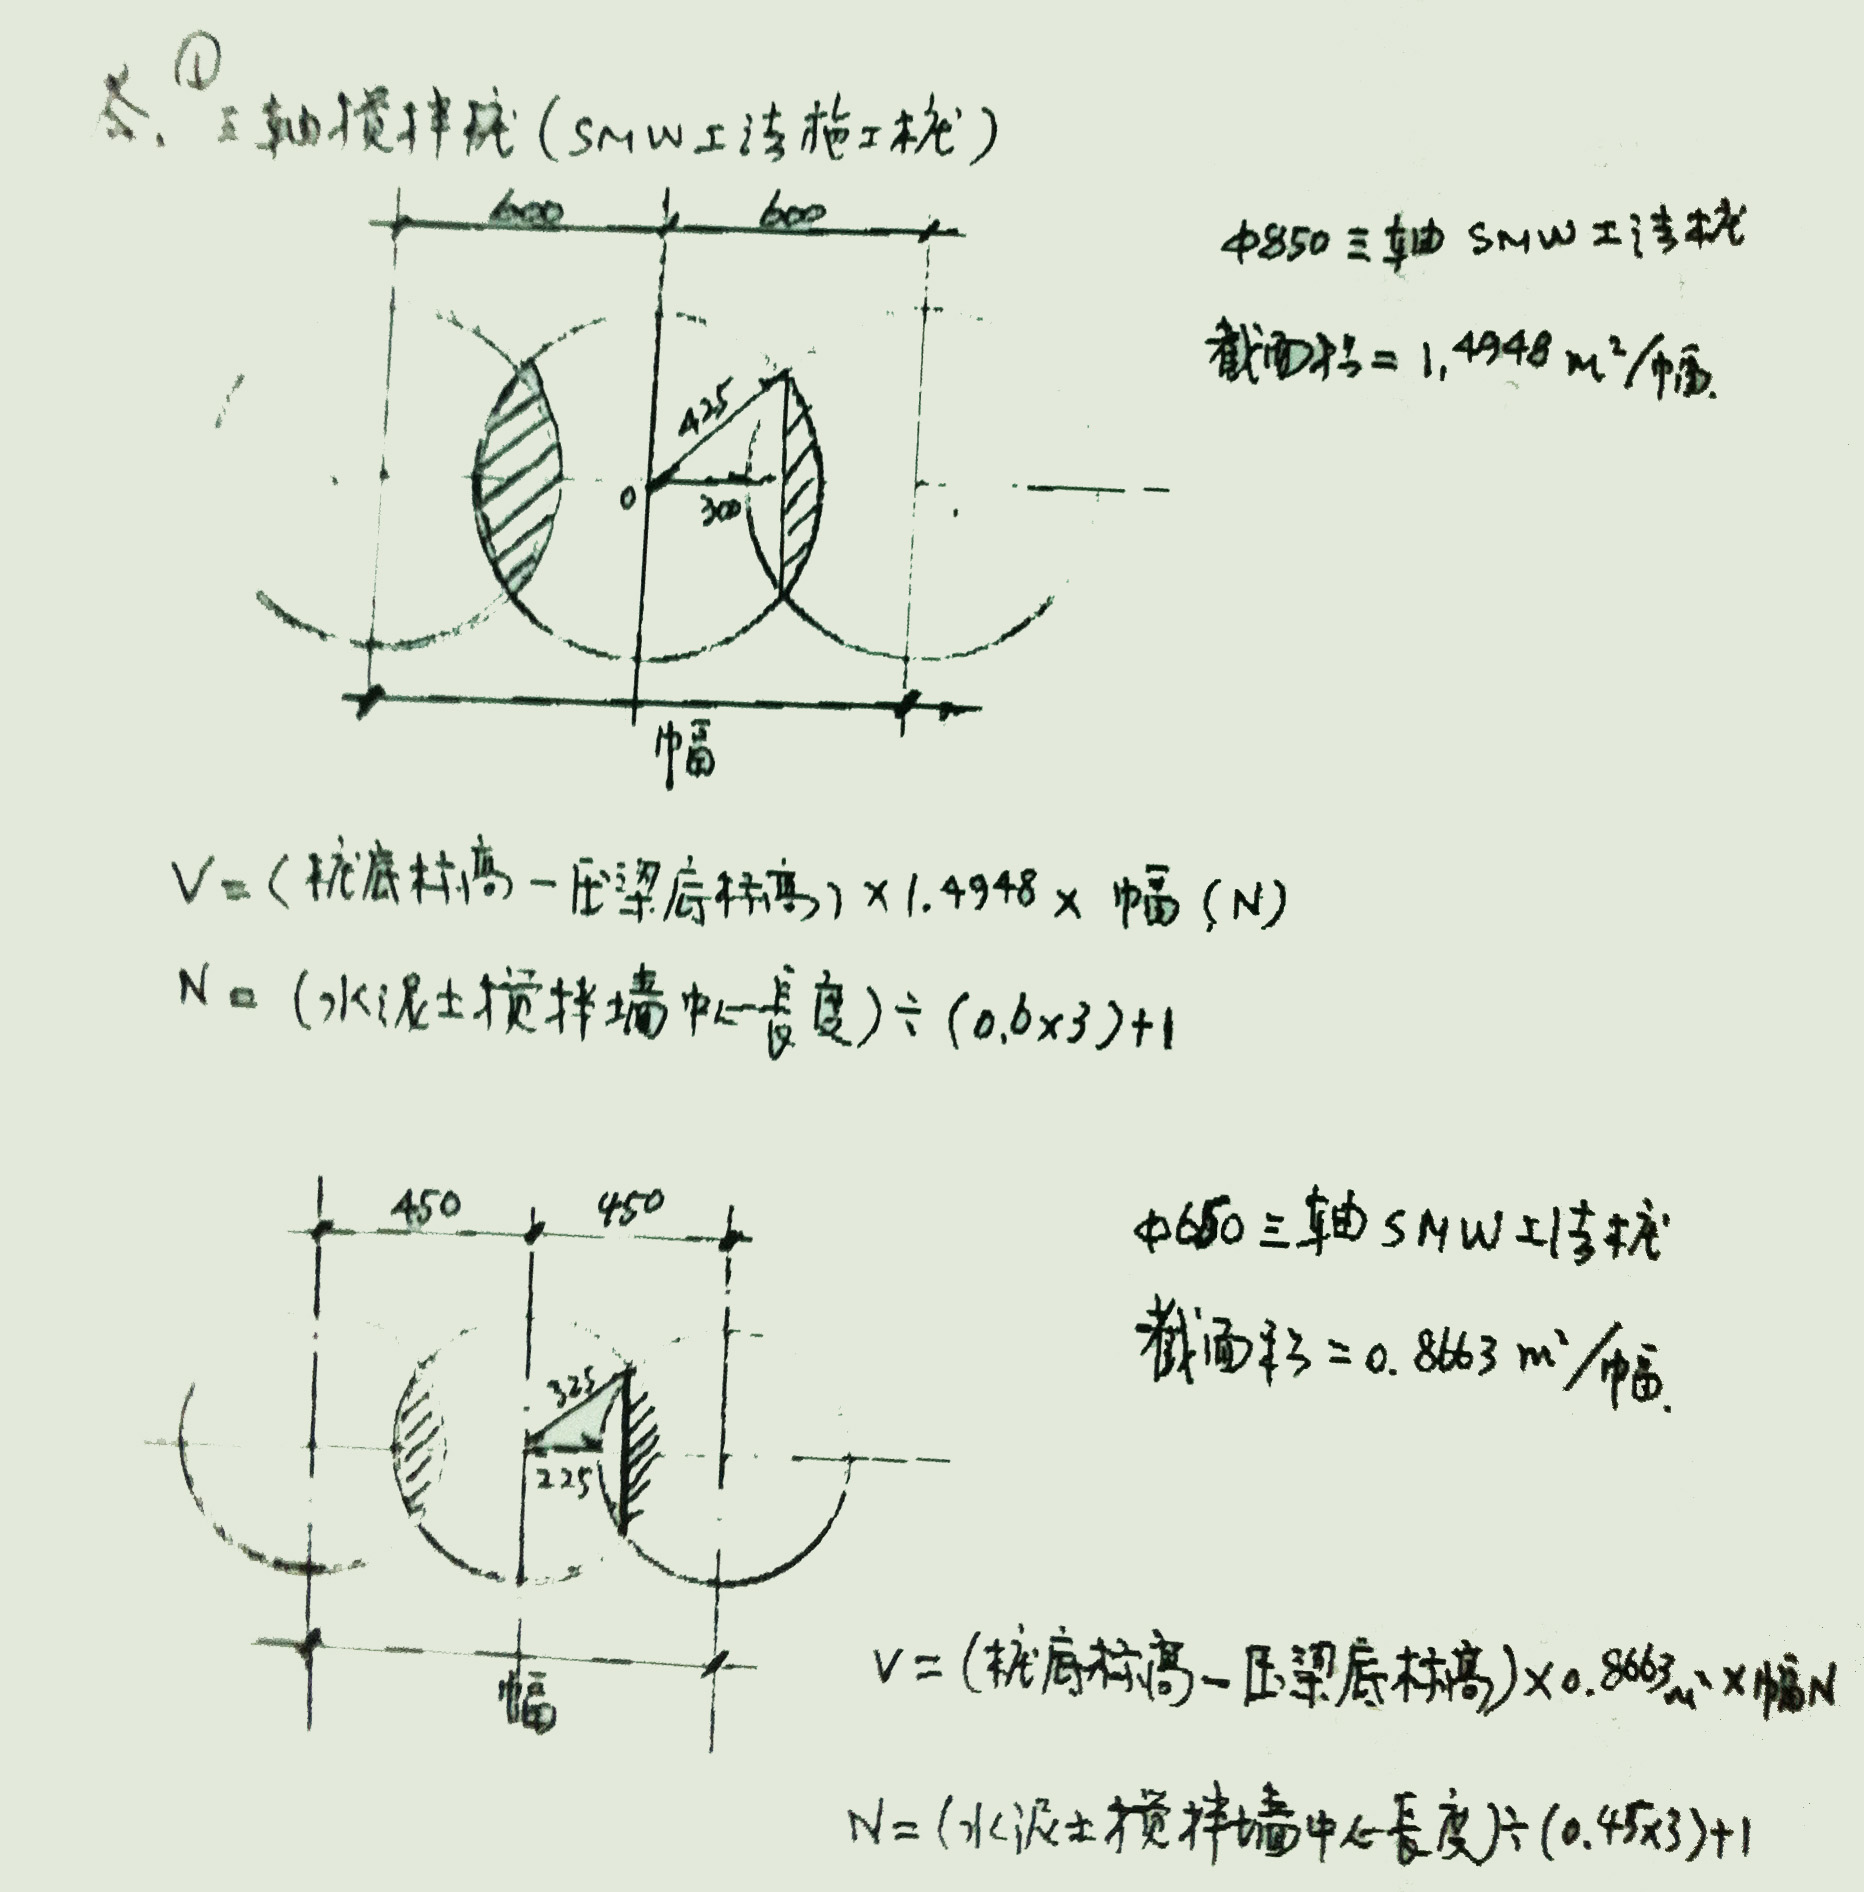 答. ①三轴搅拌桩(SMW工法施工桩)
600 600
Φ850三轴 SMW工法桩
截面积=1.4948 m²/幅.
425
0
300
幅
V=(桩底标高-压梁底标高)×1.4948× 幅(N)
N=(水泥土搅拌墙中心长度)÷(0.6×3)+1
450 450
Φ650三轴SMW工法桩
截面积=0.8663 m²/幅.
325
225
幅
V=(桩底标高-压梁底标高)×0.8663m²×幅N
N=(水泥土搅拌墙中心长度)÷(0.45×3)+1